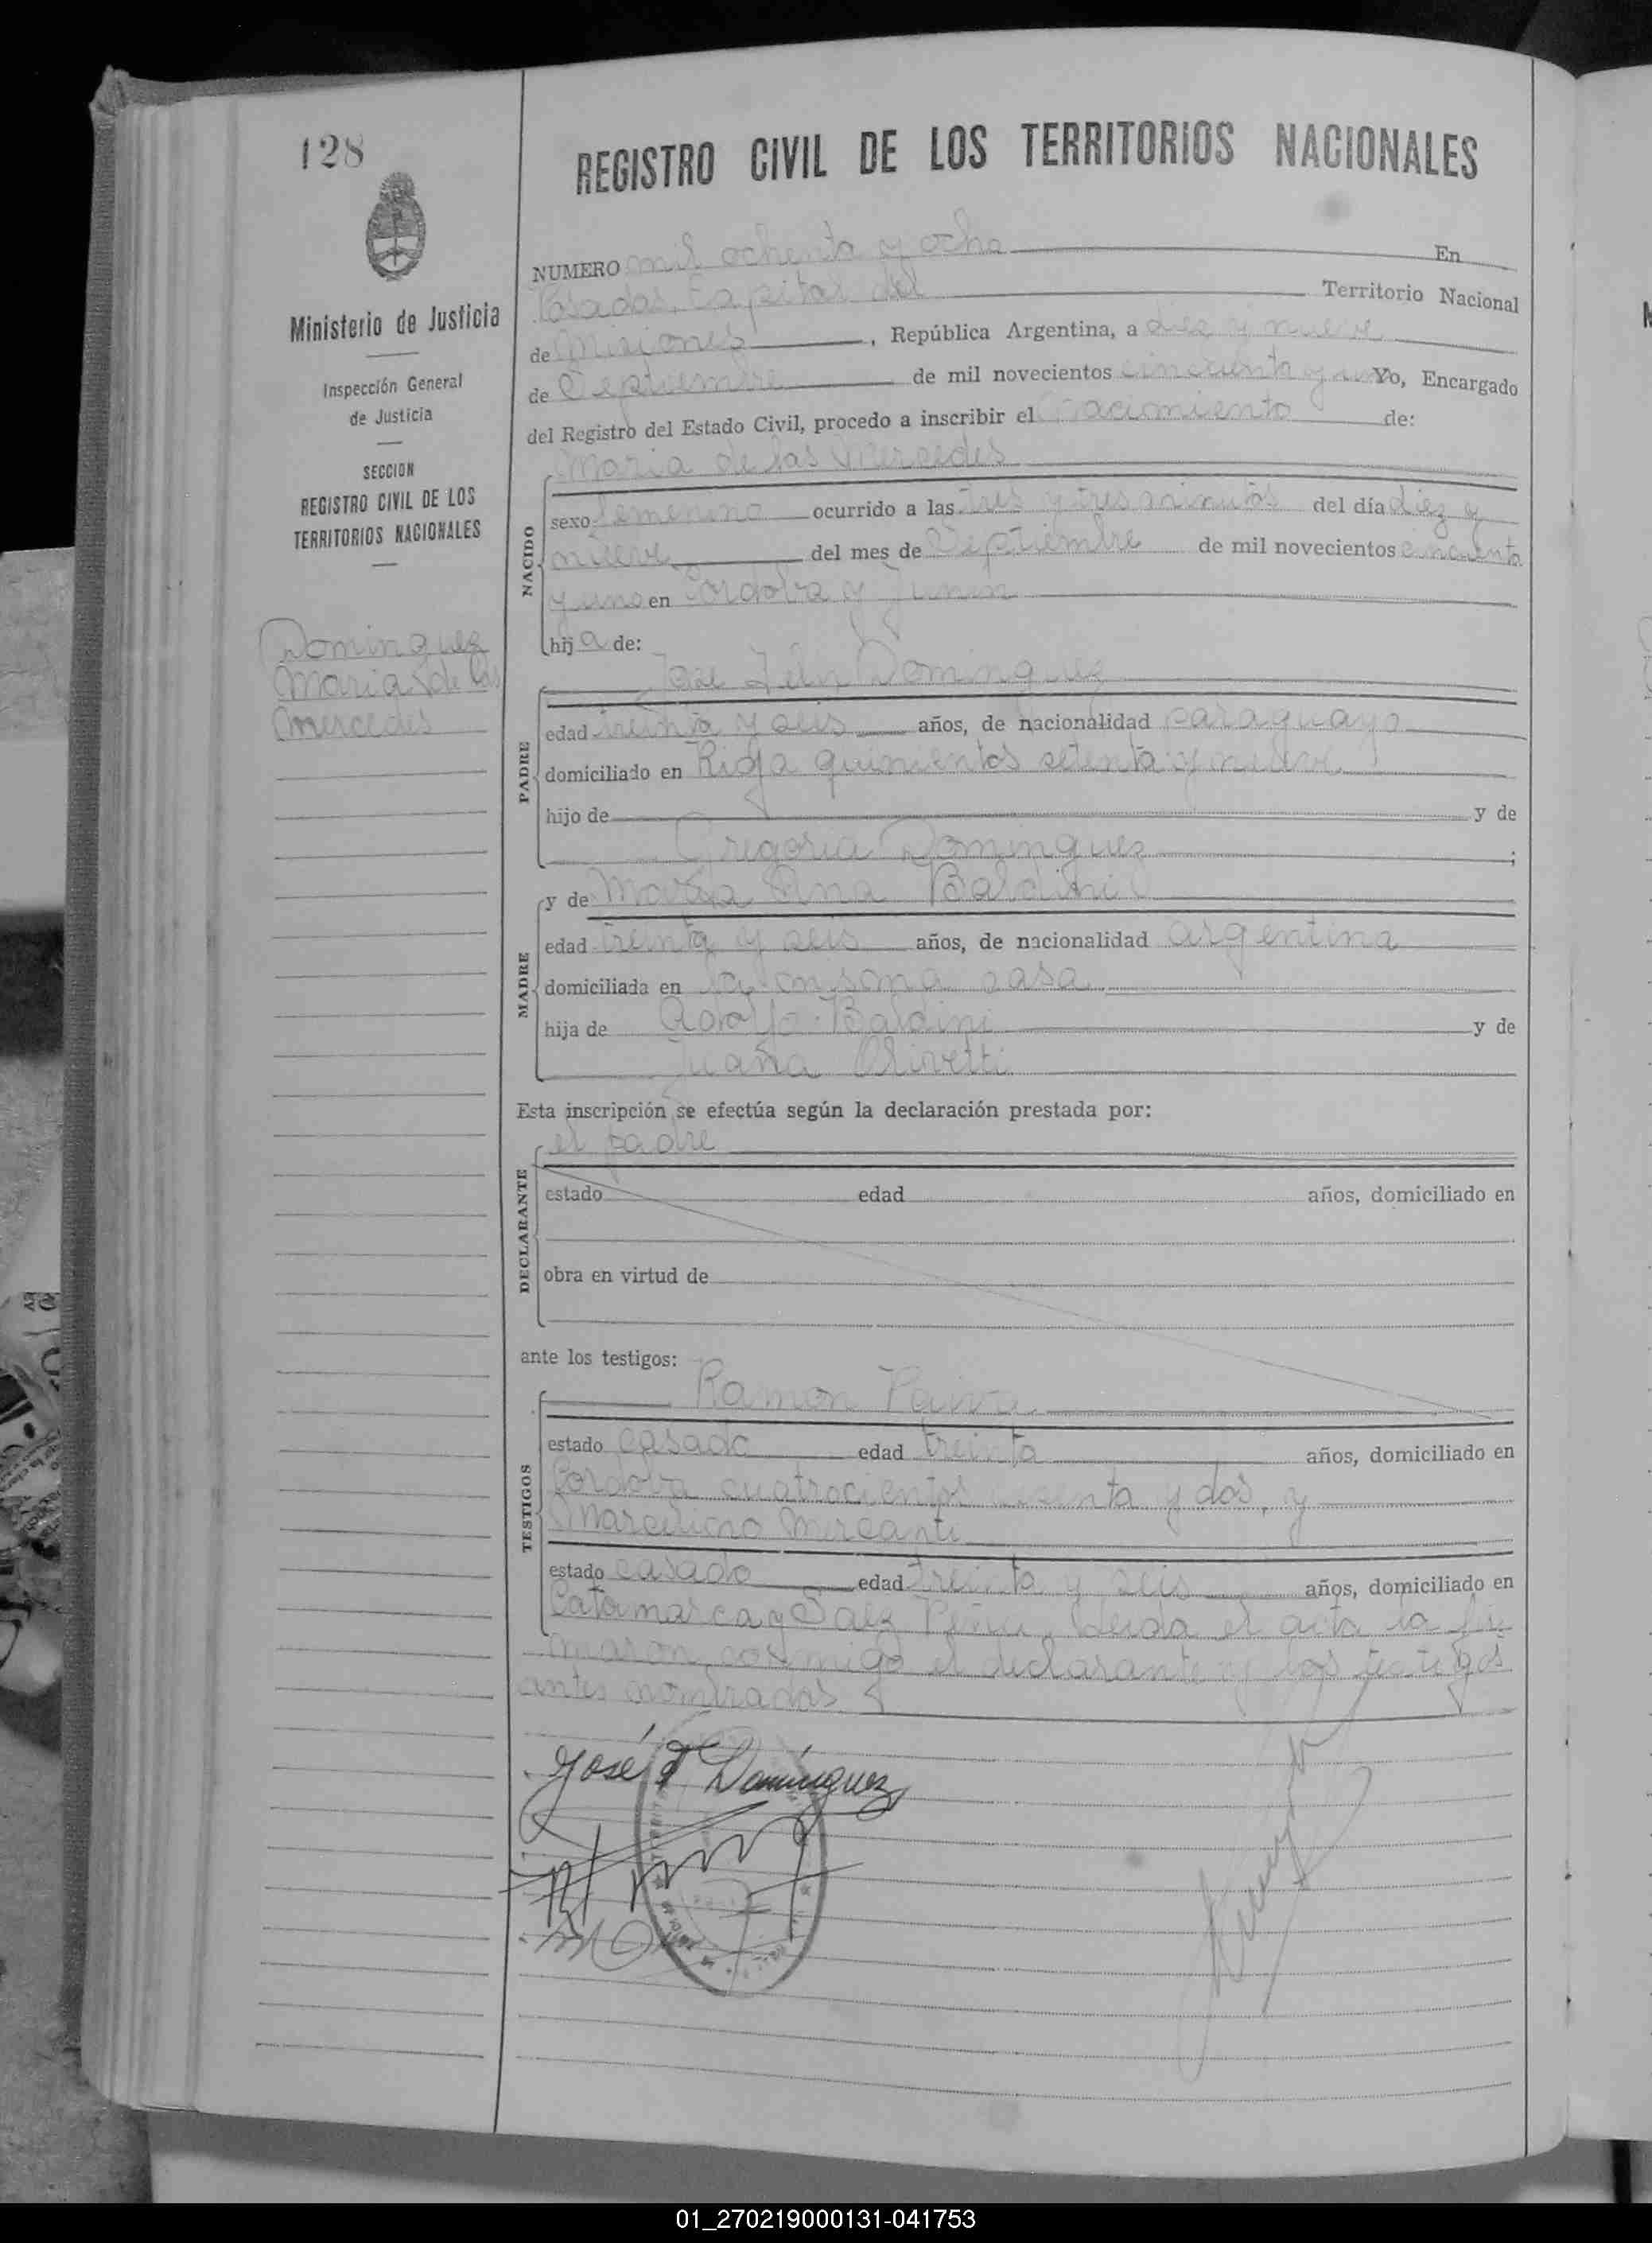 128
REGISTRO CIVIL DE LOS TERRITORIOS NACIONALES
Ministerio de Justicia
Inspección General
de Justicia
SECCION
REGISTRO CIVIL DE LOS
TERRITORIOS NACIONALES
Dominguez
Maria de las
Mercedes
NUMERO mil ochenta y ocho En
Posadas, Capital del Territorio Nacional
de Misiones, República Argentina, a diez y nueve
de Septiembre de mil novecientos cincuenta y uno Yo, Encargado
del Registro del Estado Civil, procedo a inscribir el Nacimiento de:
NACIDO
Maria de las Mercedes
sexo femenino ocurrido a las tres y tres minutos del día diez y
nueve del mes de Septiembre de mil novecientos cincuenta
y uno en Cordoba y Junin
hija de:
PADRE
José Felix Dominguez
edad treinta y seis años, de nacionalidad paraguayo
domiciliado en Rioja quinientos setenta y nueve
hijo de y de
Gregoria Dominguez ;
MADRE
y de Maria Ana Baldini
edad treinta y seis años, de nacionalidad argentina
domiciliada en la misma casa
hija de Adolfo Baldini y de
Juana Olivetti
Esta inscripción se efectúa según la declaración prestada por:
DECLARANTE
el padre
estado edad años, domiciliado en
obra en virtud de
ante los testigos:
TESTIGOS
Ramon Paiva
estado casado edad treinta años, domiciliado en
Cordoba cuatrocientos y dos, y
Marcelino Mercanti
estado casado edad treinta y seis años, domiciliado en
Catamarca y Saez Peña. Leida el acta la fir
maron conmigo el declarante y los testigos
antes nombrados.
José F Domínguez
01_270219000131-041753